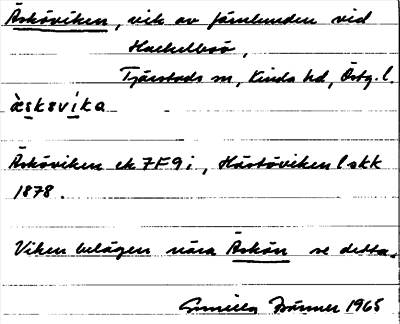 Äsköviken, vik av Järnlunden vid
Hackelboö,
Tjärstads sn, Kinda hd, Östg. l.
àsksvíka
Äsköviken ek 7F9i, Häsöviken l skk
1878.
Viken belägen nära Äskön se detta.
Gunilla 1965